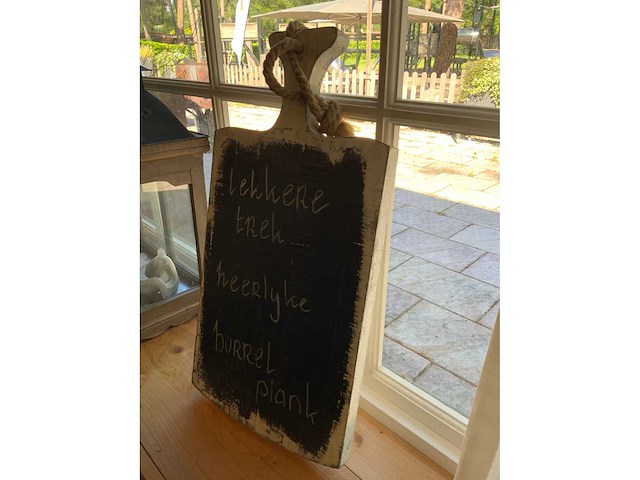 lekkere
trek.....
heerlyke
borrel
plank